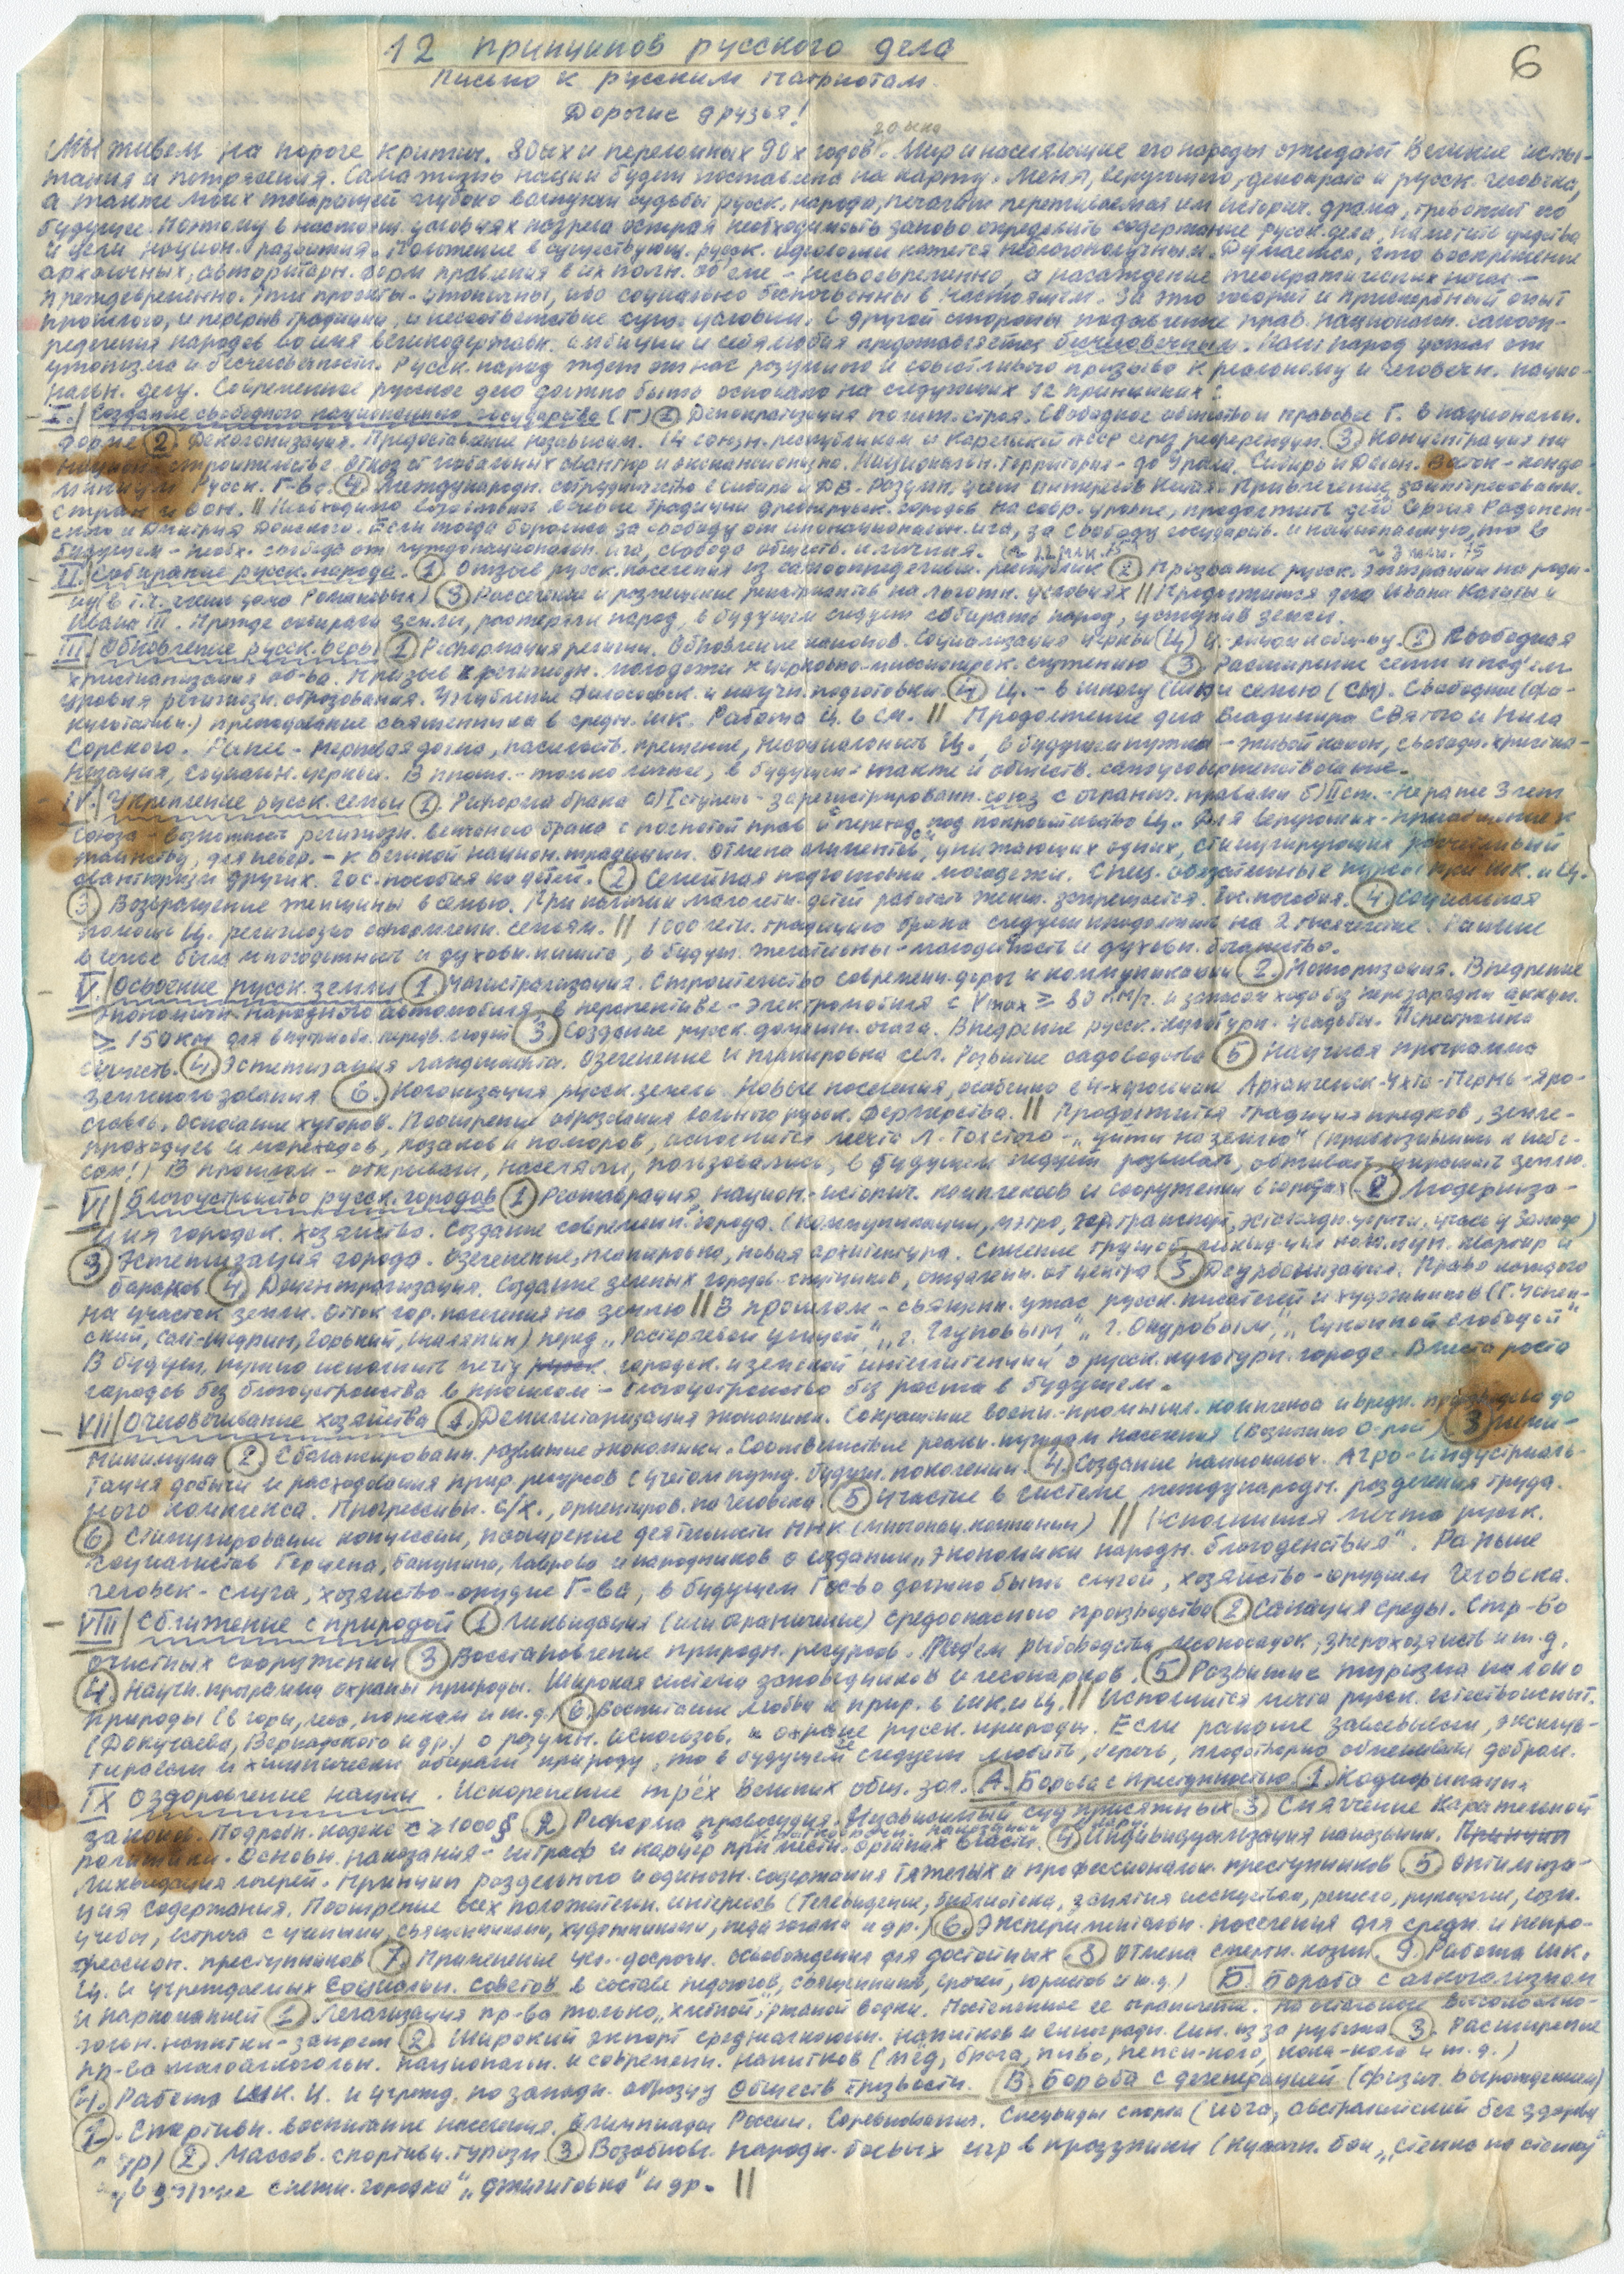 6
12 принципов русского дела
Письмо к русским патриотам
Дорогие друзья!
20 века
Мы живем на пороге критич. 80ых и переломных 90х годов. Мир и населяющие его народы ожидают Великие испы-
тания и потрясения. Сама жизнь нации будет поставлена на карту. Меня, верующего, демократа и русск. человека,
а также моих товарищей глубоко волнуют судьбы русск. народа, печалит переживаемая им историч. драма, тревожит его
будущее. Поэтому в настоящ. условиях назрела острая необходимость заново определить содержание русск. дела, наметить средства
и цели национ. развития. Положение в существующ. русск. идеологии кажется неблагополучным. Думается, что воскрешение
архаичных, авторитарн. форм правления в их полн. об'еме - несвоевременно, а насаждение теократических начал -
преждевременно. Эти проекты - утопичны, ибо социально беспочвенны в настоящем. За это говорит и печальный опыт
прошлого, и перерыв традиции, и несоответствие сущ. условий. С другой стороны подавление прав. национальн. самооп-
ределения народов во имя великодержавн. амбиции и себялюбия представляется бесчеловечным. Наш народ устал от
утопизма и бесчеловечности. Русск. народ ждет от нас разумного и совестливого призыва к реальному и человечн. нацио-
нальн. делу. Современное русское дело должно быть основано на следующих 12 принципах:
I. Создание свободного национального государства (Г) 1. Демократизация полит. строя. Свободное общество и правовое Г. в национальн.
форме 2. Деколонизация. Предоставление независим. 14 союзн. республикам и Карельской АССР через референдум. 3. Концентрация на
национ. строительстве. Отказ от глобальных авантюр и экспансионизма. Национальн. территория - до Урала. Сибирь и Дальн. Восток - кондо-
миниум Русск. Г-ва. 4. Международн. сотрудничество в Сибири и ДВ. Разумн. учет интересов Китая. Привлечение заинтересованн.
стран и ООН. || Необходимо восстановить вечевые традиции древнерусск. городов на совр. уровне, продолжить дело Сергия Радонеж-
ского и Дмитрия Донского. Если тогда боролись за свободу от инонациональн. ига, за свободу государств. и национальную, то в
будущем - необх. свобода от чуждонациональн. ига, свобода обществ. и личная.
II. Собирание русск. народа. 1. Отзыв русск. населения из самоопределивш. республик 2. Призвание русск. эмиграции на роди-
ну (в т.ч. члены дома Романовых) 3. Расселение и размещение репатриантов на льготн. условиях || Продолжится дело Ивана Калиты и
Ивана III. Прежде собирали земли, растеряли народ, в будущем следует собирать народ, уступив земли.
III Обновление русск. веры 1. Реформация религии. Обновление канонов. Социализация церкви (Ц) Ц. - лицом к общ-ву. 2. Свободная
христианизация об-ва. Призыв к религиозн. молодежи к церковно-миссионерск. служению 3. Расширение сети и под'ем
уровня религиозн. образования. Углубление философск. и научн. подготовки. 4. Ц. - в школу (шк) и семью (см). Свободное (фа-
культативн.) преподавание священника в средн. шк. Работа Ц. в см. || Продолжение дела Владимира Святого и Нила
Сорского. Ранее - мертвая догма, насильств. крещение, несоциальность Ц., в будущем нужны - живой канон, свободн. христиа-
низация, социальн. церковь. В прошл. - только личное, в будущем - также и обществ. самоусовершенствование.
IV. Укрепление русск. семьи 1. Реформа брака а) I ступень - зарегистрированн. союз с огранич. правами б) II ст. - не ранее 3 лет
союза - возможность религиозн. венчаного брака с полнотой прав и переход под покровительство Ц. Для верующих - приобщение к
таинству, для невер. - к великой национ. традиции. Отмена алиментов, унижающих одних, стимулирующих расчетливый
авантюризм других. Гос. пособия на детей. 2. Семейная подготовка молодежи. Спец. обязательные курсы при шк. и Ц.
3. Возвращение женщины в семью. При наличии малолетн. детей работать женщ. запрещается. Гос. пособия. 4. Социальная
помощь Ц. религиозно оформленн. семьям. || 1000 летн. традицию брака следует продолжить на 2 тысячелетие. Раньше
в семье была многодетность и духовн. нищета, в будущ. желательны - малодетность и духовн. богатство.
V. Освоение русск. земли 1. Магистрализация. Строительство современн. дорог и коммуникаций 2. Моторизация. Внедрение
экономичн. народного автомобиля, в перспективе - электромобиля с Vmax ≥ 80 км/ч. и запасом хода без перезарядки аккум.
≥ 150 км для внутриобл. передв. людей 3. Создание русск. домашн. очага. Внедрение русск. культурн. усадьбы. Перестройка
существ. 4. Эстетизация ландшафта. Озеленение и планировка сел. Развитие садоводства 5. Научная программа
землепользования 6. Колонизация русск. земель. Новые поселения, особенно в 4-хугольнике Архангельск-Ухта-Пермь-Яро-
славль. Основание хуторов. Поощрение образования вольного русск. фермерства. || Продолжится традиция предков, земле-
проходцев и мореходов, казаков и поморов, исполнится мечта Л. Толстого - „уйти на землю" (приблизившись к небе-
сам!) В прошлом - открывали, населяли, пользовались, в будущем следует развивать, обживать, украшать землю.
VI Благоустройство русск. городов 1. Реставрация национ.-историч. комплексов и сооружений в городах 2. Модерниза-
ция городск. хозяйства. Создание современн. города. (Коммуникации, метро, транспорт, эстакадн.)
3. Эстетизация города. Озеленение, планировка, новая архитектура. Снесение трущоб, ликвид-ция коммун. квартир и
бараков 4. Децентрализация. Создание зеленых городов-спутников, отдаленн. от центра. 5. Дезурбанизация. Право каждого
на участок земли. Отток гор. населения на землю || В прошлом - священн. ужас русск. писателей и художников (Г. Успен-
ский, Салт-Щедрин, Горький, Шаляпин) перед „Растеряевой улицей", „г. Глуповым", „г. Окуровым", „Суконной слободой"
В будущ. нужно исполнить мечту городск. и земской интеллигенции о русск. культурн. городе. Вместо роста
городов без благоустройства в прошлом - благоустройство без роста в будущем.
VII Очеловечивание хозяйства 1. Демилитаризация экономики. Сокращение военн.-промышл. комплекса и вредн. производства до
минимума 2. Сбалансированн. развитие экономики. Соответствие реальн. нуждам населения 3. Лими-
тация добычи и расходования прир. ресурсов с учетом нужд. будущ. поколений. 4. Создание национальн. Агро-индустриаль-
ного комплекса. Прогрессивн. с/х., ориентиров. на человека. 5. Участие в системе международн. разделения труда.
6. Стимулирование концессии, поощрение деятельности МНК (многонац. компании) || Исполнится мечта русск.
социалистов Герцена, Бакунина, Лаврова и народников о создании „экономики народн. благоденствия". Раньше
человек - слуга, хозяйство - орудие Г-ва, в будущем Гос-во должно быть слугой, хозяйство - орудием человека.
VIII Сближение с природой 1. Ликвидация (или ограничение) средоопасного производства 2. Санация среды. Стр-во
очистных сооружений 3. Восстановление природн. ресурсов. Под'ем рыбоводства, лесопосадок, зверохозяйств и т.д.
4. Научн. программа охраны природы. Широкая система заповедников и лесопарков. 5. Развитие туризма на лоно
природы (в горы, лес, по рекам и т.д.) 6. Воспитание любви к прир. в шк. и Ц. || Исполнится мечта русск. естествоиспыт.
(Докучаева, Вернадского и др.) о разумн. использов. и охране русск. природы. Если раньше завоевывали, эксплуа-
тировали и хищнически обирали природу, то в будущем следует любить, беречь, плодотворно обмениваться добром.
IX Оздоровление нации. Искоренение трёх Великих общ. зол. А. Борьба с преступностью 1. Кодификация
законов. Подробн. кодекс с ≥ 1000 § 2. Реформа правосудия. Независимый суд присяжных 3. Смягчение карательной
политики. Основн. наказания - штраф и карцер при местн. органах власти. 4. Индивидуализация наказания.
Ликвидация лагерей. Принцип раздельного и одиночн. содержания тяжелых и профессиональн. преступников 5. Оптимиза-
ция содержания. Поощрение всех положительн. интересов (телевидение, библиотека, занятия искусством, ремесло, рукоделие,
учебы, встреча с учеными, священниками, художниками, педагогами и др.) 6. Экспериментальн. поселения для средн. и непро-
фессион. преступников 7. Применение усл.-досрочн. освобождения для достойных 8. Отмена смертн. казни. 9. Работа шк.
Ц. и учреждаемых социальн. советов в составе педагогов, священников, врачей, юристов и т.д.) Б. Борьба с алкоголизмом
и наркоманией 1. Легализация пр-ва только „хлебной", ржаной водки. Постепенное ее ограничение. На остальные высокоалко-
гольн. напитки - запрет 2. Широкий экспорт среднеалкогольн. напитков и виноградн. вин. из за рубежа 3. Расширение
пр-ва малоалкогольн. национальн. и современн. напитков (мед, брага, пиво, пепси-кола, кока-кола и т.д.)
4. Работа шк. Ц. и учрежд. по западн. образцу обществ трезвости. В. Борьба с дегенерацией (физич. вырождением)
1. Спортивн. воспитание населения. Олимпиады России. Соревнования. Спецвиды спорта (йога, австралийский бег здоровья
и др) 2. Массов. спортивн. туризм 3. Возобновл. народн. боевых игр в праздники (кулачн. бои, „стенка на стенку",
взятие снежн. городка", „джигитовка" и др. ||